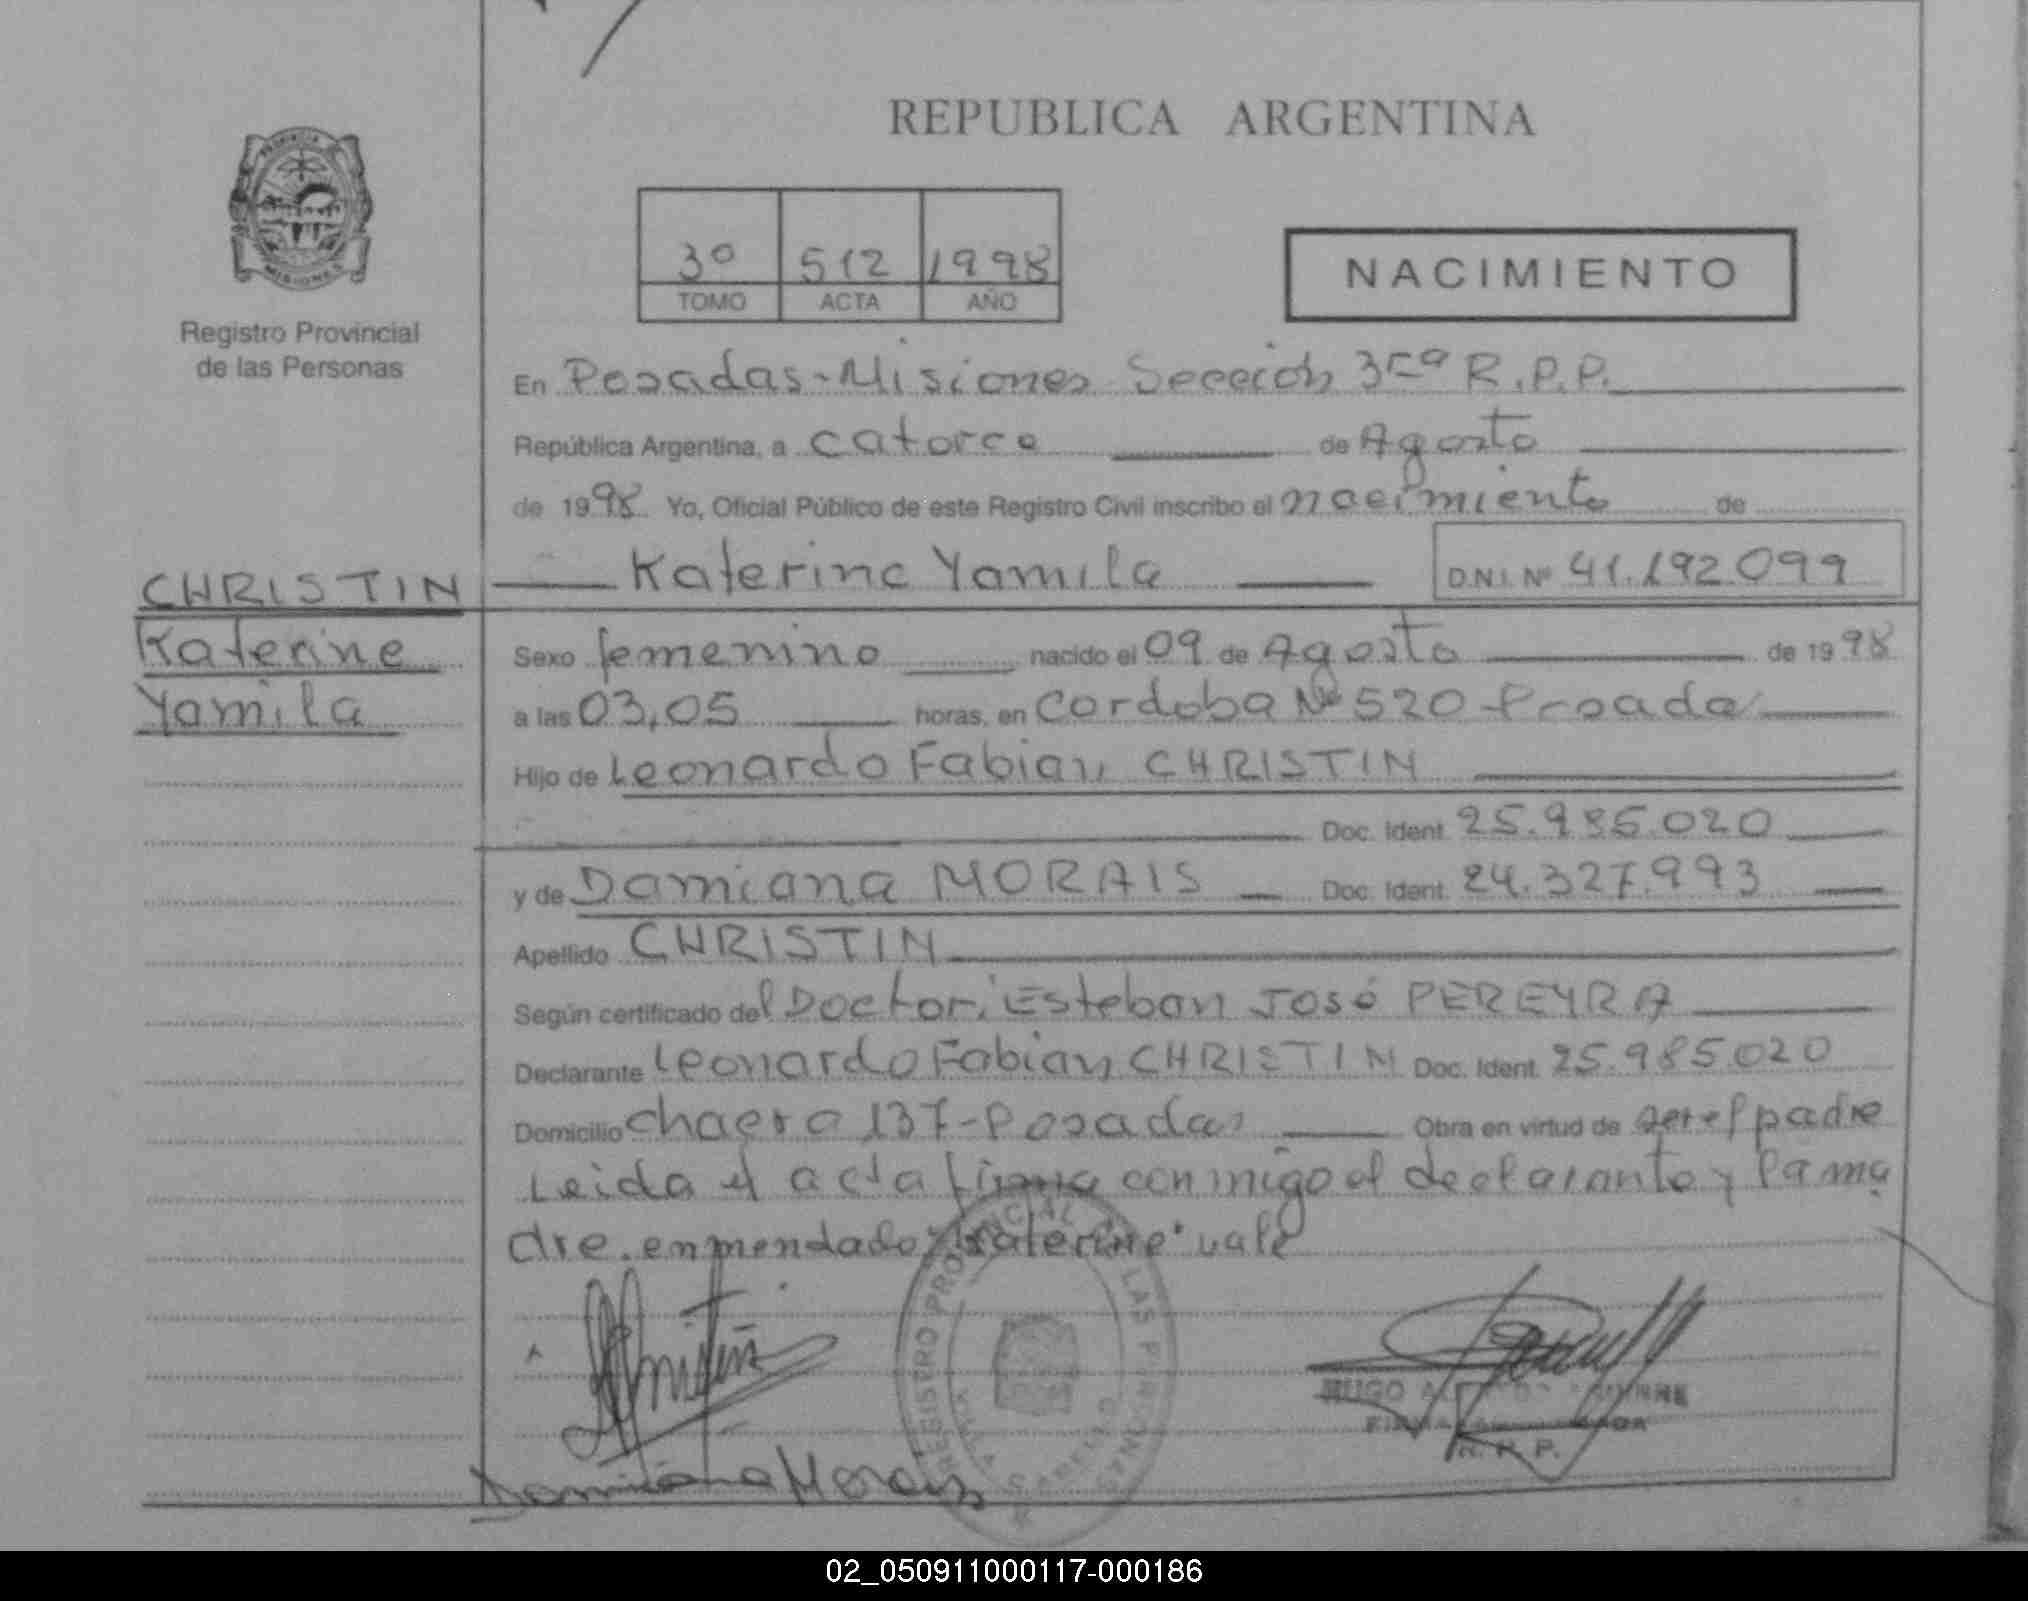 REPUBLICA ARGENTINA
PROVINCIA
MISIONES
Registro Provincial
de las Personas
3º 512 1998
TOMO ACTA AÑO
NACIMIENTO
En Posadas-Misiones Sección 3ra R.P.P.
República Argentina, a catorce de Agosto
de 1998 Yo, Oficial Público de este Registro Civil inscribo el nacimiento de
Katerine Yamila D.N.I. Nº 41.192.099
CHRISTIN
Katerine
Yamila
Sexo femenino nacido el 09 de Agosto de 1998
a las 03,05 horas, en Cordoba Nº 520 Posadas
Hijo de Leonardo Fabian CHRISTIN
Doc. Ident. 25.985.020
y de Damiana MORAIS Doc. Ident. 24.327.993
Apellido CHRISTIN
Según certificado del Doctor: Esteban José PEREYRA
Declarante Leonardo Fabian CHRISTIN Doc. Ident. 25.985.020
Domicilio chacra 137-Posadas Obra en virtud de ser el padre
Leida el acta firma conmigo el declarante y la ma
dre. enmendado "Katerine" vale
REGISTRO PROVINCIAL DE LAS PERSONAS
VILLA CABELLO
HUGO
R. P. P.
Damiana Morais
02_050911000117-000186